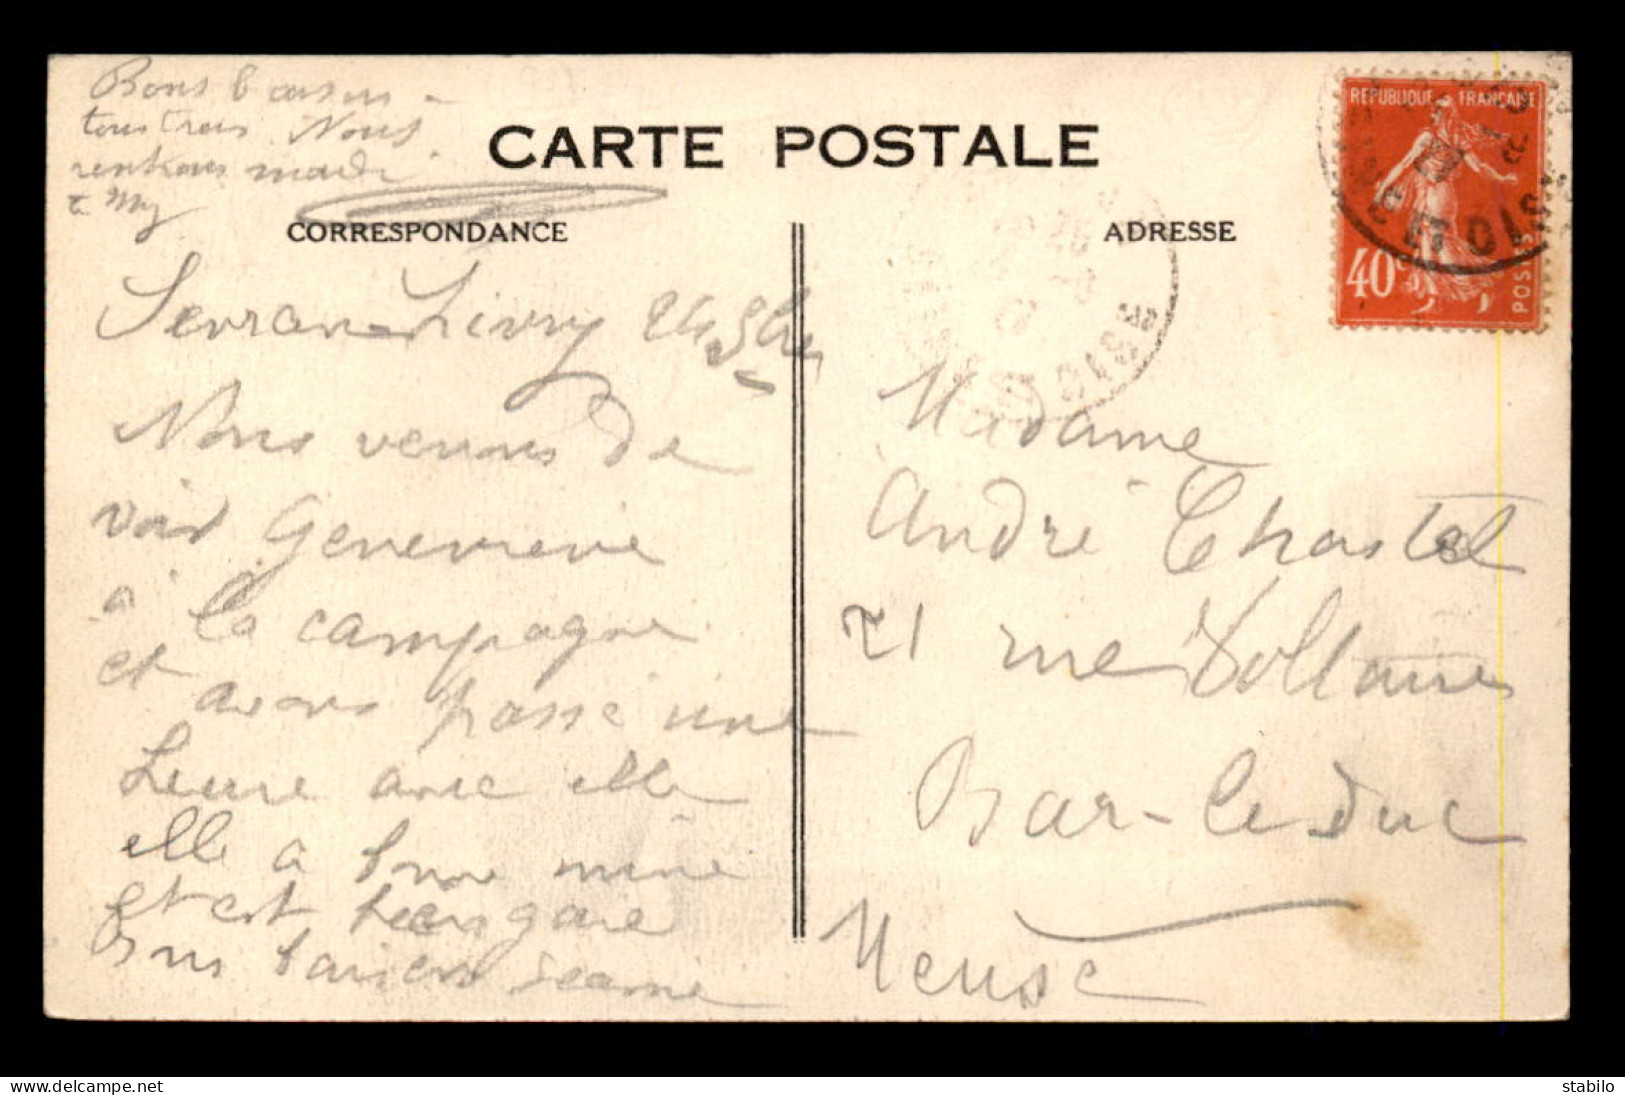 Bons baisers à
tous trois Nous
rentrons mardi
CARTE POSTALE
CORRESPONDANCE
ADRESSE
REPUBLIQUE FRANÇAISE
40c
POSTES
SEINE ET OISE
OISE
Sevran-Livry
Nous venons de
voir Genevieve
à la campagne
et avons passé une
heure avec elle
elle a bonne mine
et est bien gaie
Madame
André Chastel
21 rue Voltaire
Bar-le-duc
Meuse
www.delcampe.net
stabilo